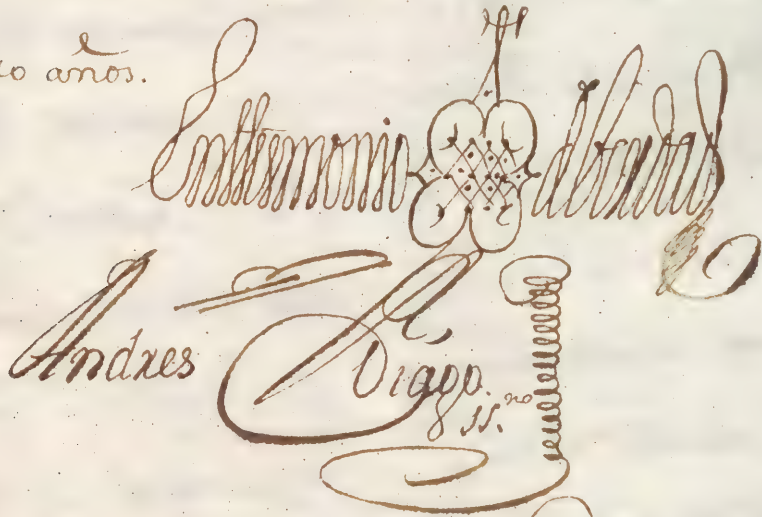 o años.
En testimonio de verdad
Andres Diago
ss.no